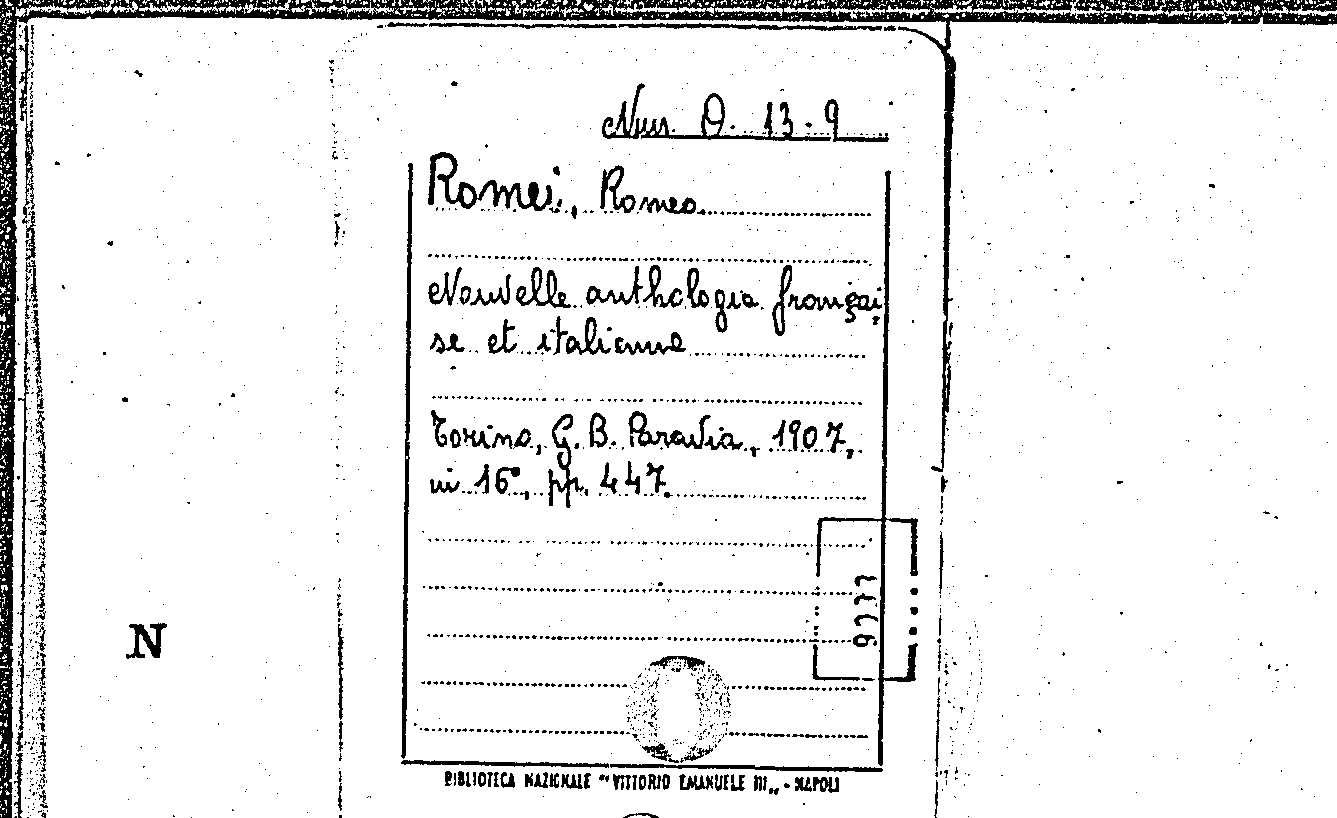 Nuu. O. 13-9
Romei, Romeo.
Nouvelle anthologie françai
se et italienne
Torino, G. B. Paravia, 1907,
in 16°, pp. 447.
9777
N
BIBLIOTECA NAZIONALE "VITTORIO EMANUELE III„ - NAPOLI